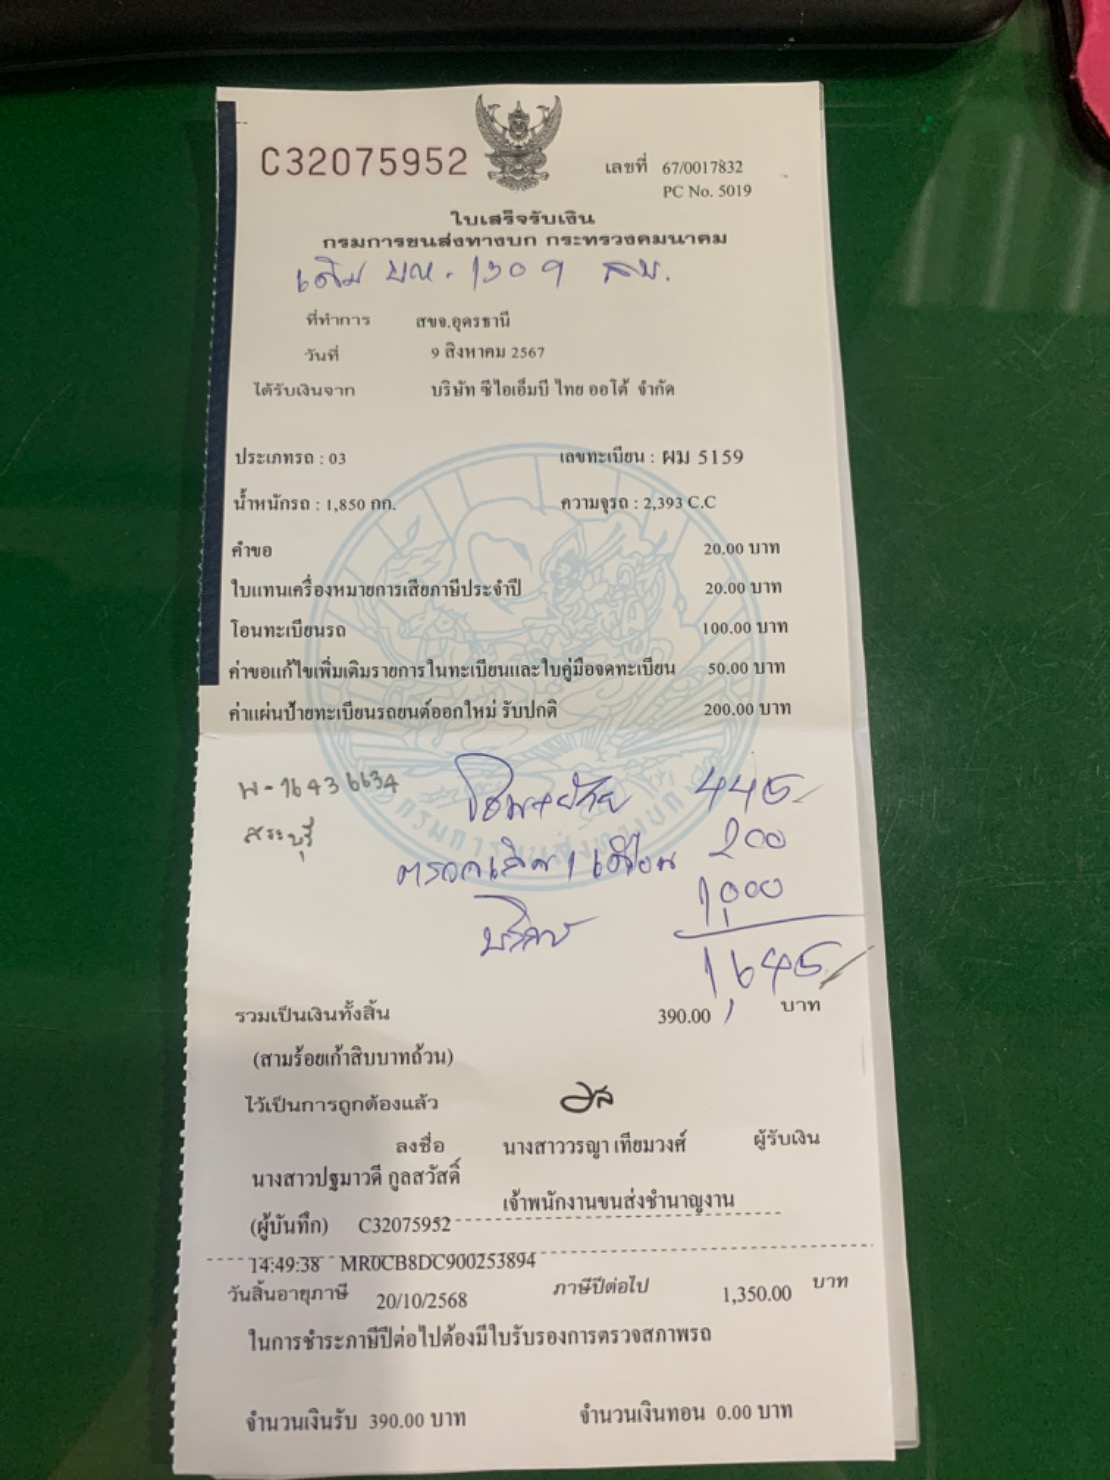 C32075952
เลขที่ 67/0017832
PC No. 5019
ใบเสร็จรับเงิน
กรมการขนส่งทางบก กระทรวงคมนาคม
เดิม บห - 1309 สบ.
ที่ทำการ สขจ.อุดรธานี
วันที่ 9 สิงหาคม 2567
ได้รับเงินจาก บริษัท ซีไอเอ็มบี ไทย ออโต้ จำกัด
ประเภทรถ : 03 เลขทะเบียน : ผม 5159
น้ำหนักรถ : 1,850 กก. ความจุรถ : 2,393 C.C
คำขอ 20.00 บาท
ใบแทนเครื่องหมายการเสียภาษีประจำปี 20.00 บาท
โอนทะเบียนรถ 100.00 บาท
ค่าขอแก้ไขเพิ่มเติมรายการในทะเบียนและใบคู่มือจดทะเบียน 50.00 บาท
ค่าแผ่นป้ายทะเบียนรถยนต์ออกใหม่ รับปกติ 200.00 บาท
445
สระบุรี
200
บริการ 1,000
1,645
กรมการขนส่งทางบก
รวมเป็นเงินทั้งสิ้น 390.00 บาท
(สามร้อยเก้าสิบบาทถ้วน)
ไว้เป็นการถูกต้องแล้ว
ลงชื่อ นางสาววรญา เทียมวงศ์ ผู้รับเงิน
นางสาวปฐมาวดี กูลสวัสดิ์
เจ้าพนักงานขนส่งชำนาญงาน
(ผู้บันทึก) C32075952
14:49:38 MR0CB8DC900253894
วันสิ้นอายุภาษี 20/10/2568 ภาษีปีต่อไป 1,350.00 บาท
ในการชำระภาษีปีต่อไปต้องมีใบรับรองการตรวจสภาพรถ
จำนวนเงินรับ 390.00 บาท จำนวนเงินทอน 0.00 บาท